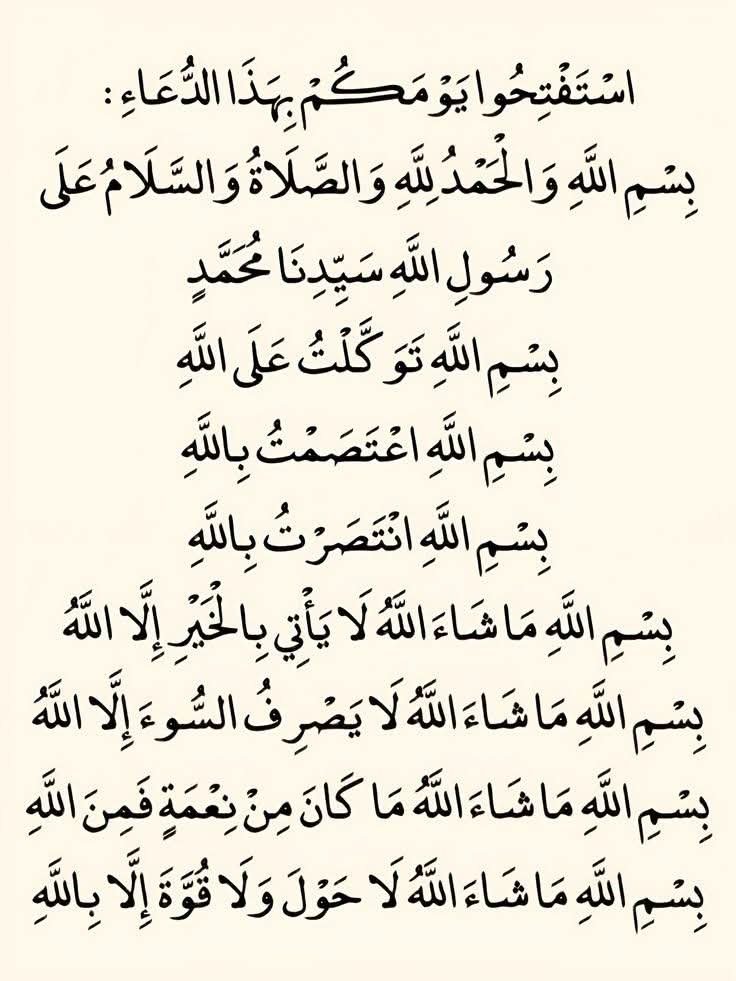 اسْتَفْتِحُوا يَوْمَكُمْ بِهَذَا الدُّعَاءِ :
بِسْمِ اللَّهِ وَالْحَمْدُ لِلَّهِ وَالصَّلَاةُ وَالسَّلَامُ عَلَى
رَسُولِ اللَّهِ سَيِّدِنَا مُحَمَّدٍ
بِسْمِ اللَّهِ تَوَكَّلْتُ عَلَى اللَّهِ
بِسْمِ اللَّهِ اعْتَصَمْتُ بِاللَّهِ
بِسْمِ اللَّهِ انْتَصَرْتُ بِاللَّهِ
بِسْمِ اللَّهِ مَا شَاءَ اللَّهُ لَا يَأْتِي بِالْخَيْرِ إِلَّا اللَّهُ
بِسْمِ اللَّهِ مَا شَاءَ اللَّهُ لَا يَصْرِفُ السُّوءَ إِلَّا اللَّهُ
بِسْمِ اللَّهِ مَا شَاءَ اللَّهُ مَا كَانَ مِنْ نِعْمَةٍ فَمِنَ اللَّهِ
بِسْمِ اللَّهِ مَا شَاءَ اللَّهُ لَا حَوْلَ وَلَا قُوَّةَ إِلَّا بِاللَّهِ